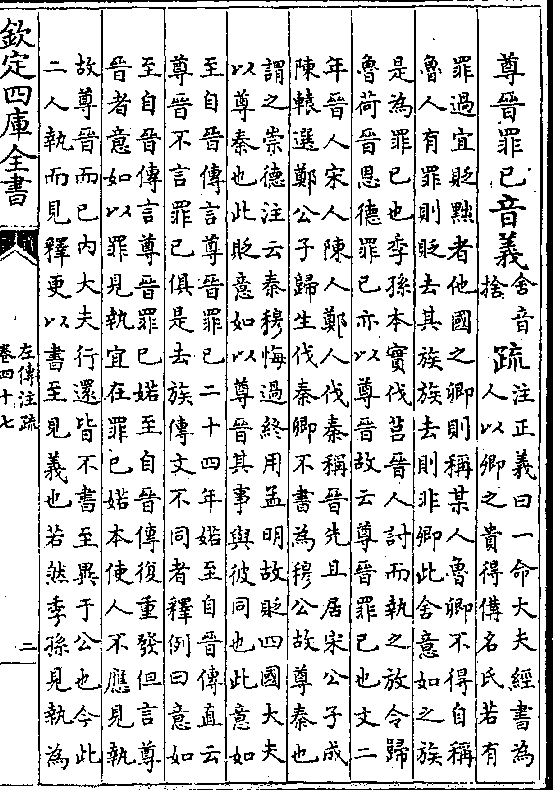 尊晉罪已音義舍音捨疏注正義曰一命大夫經書為
人以卿之貴得備名氏若有
罪過宜貶黜者他國之卿則稱某人魯卿不得自稱
魯人有罪則貶去其族族去則非卿此舍意如之族
是為罪已也季孫本實伐莒晉人討而執之放令歸
魯荷晉恩德罪已亦以尊晉故云尊晉罪已也文二
年晉人宋人陳人鄭人伐秦稱晉先且居宋公子成
陳轅選鄭公子歸生伐秦卿不書為穆公故尊秦也
謂之崇德注云秦穆悔過終用孟明故貶四國大夫
以尊秦也此貶意如以尊晉其事與彼同也此意如
至自晉傳言尊晉罪已二十四年婼至自晉傳直云
尊晉不言罪已俱是去族傳文不同者釋例曰意如
至自晉傳言尊晉罪已婼至自晉傳復重發但言尊
晉者意如以罪見執宜在罪已婼本使人不應見執
故尊晉而已內大夫行還皆不書至異于公也今此
二人執而見釋更以書至見義也若然季孫見執為
欽定四庫全書
左傳注疏
卷四十七
二